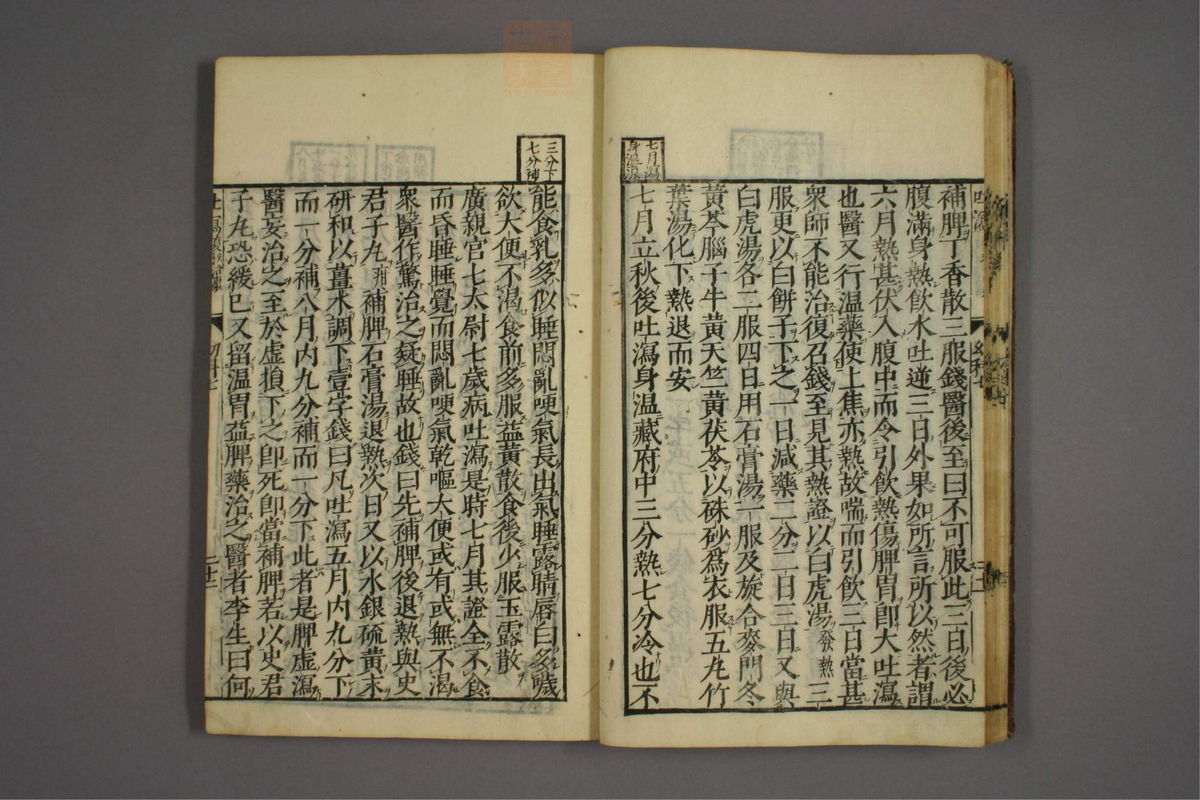 補脾丁香散三服錢醫後至曰不可服此三日後必
腹滿身熱飲水吐逆三日外果如所言所以然者謂
六月熱甚伏入腹中而令引飲熱傷脾胃即大吐瀉
也醫又行温藥使上焦亦熱故喘而引飲三日當甚
衆師不能治復召錢至見其熱證以白虎湯發熱三
服更以白餅子下之一日減藥二分二日三日又與
白虎湯各二服四日用石膏湯一服及旋合麥門冬
黃芩腦子牛黃天竺黃茯苓以硃砂爲衣服五丸竹
葉湯化下熱退而安
七月瀉
身温涼
七月立秋後吐瀉身温藏府中三分熱七分冷也不
三分下
七分補
能食乳多似睡悶亂哽氣長出氣睡露睛唇白多噦
欲大便不渴食前多服益黃散食後少服玉露散
廣親宫七太尉七歲病吐瀉是時七月其證全不食
而昏睡睡覺而悶亂哽氣乾嘔大便或有或無不渴
衆醫作驚治之疑睡故也錢曰先補脾後退熱與史
君子丸補脾石膏湯退熱次日又以水銀硫黃末
研和以薑水調下壹字錢曰凡吐瀉五月内九分下
而一分補八月内九分補而一分下此者是脾虚瀉
醫妄治之至於虚損下之即死即當補脾若以史君
子丸恐緩已又留温胃益脾藥治之醫者李生曰何